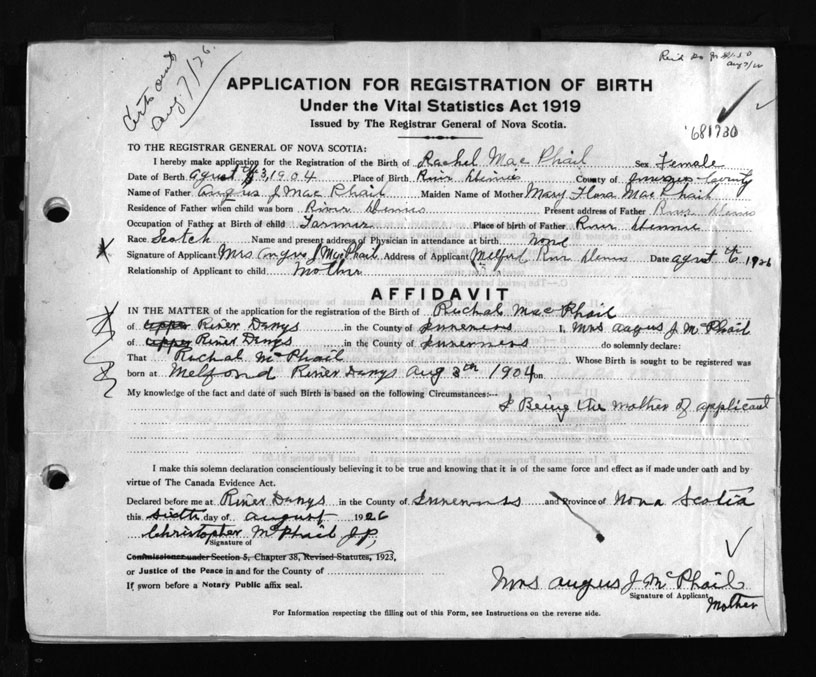 aug 7/26
aug 7/26
APPLICATION FOR REGISTRATION OF BIRTH
Under the Vital Statistics Act 1919
Issued by The Registrar General of Nova Scotia.
681930
TO THE REGISTRAR GENERAL OF NOVA SCOTIA:
I hereby make application for the Registration of the Birth of Rachel Mac Phail Sex Female
Date of Birth 3, 1904 Place of Birth River Dennis County of County
Name of Father Angus J Mac Phail Maiden Name of Mother Mary Flora Mac Phail
Residence of Father when child was born River Dennis Present address of Father River Dennis
Occupation of Father at Birth of child Farmer Place of birth of Father River Dennis
Race Scotch Name and present address of Physician in attendance at birth none
Signature of Applicant Mrs Angus J MacPhail Address of Applicant Melford River Dennis Date agust 6th 1926
Relationship of Applicant to child mother
AFFIDAVIT
IN THE MATTER of the application for the registration of the Birth of Ruchal Mac Phail
of upper River Danys in the County of Inverness I, Mrs aagus J. McPhail
of upper River Danys in the County of Inverness do solemnly declare:
That Ruchal McPhail Whose Birth is sought to be registered was
born at Melfond River Danys Aug 3th 1904 on
My knowledge of the fact and date of such Birth is based on the following Circumstances:—
I Being the mother of applicant
I make this solemn declaration conscientiously believing it to be true and knowing that it is of the same force and effect as if made under oath and by
virtue of The Canada Evidence Act.
Declared before me at River Danys in the County of Inverness and Province of Nova Scotia
this sixth day of august 1926
Christopher McPhail J.P,
Signature of
Commissioner under Section 5, Chapter 38, Revised Statutes, 1923,
or Justice of the Peace in and for the County of
If sworn before a Notary Public affix seal.
Mrs angus J McPhail
Signature of Applicant
Mother
For Information respecting the filling out of this Form, see Instructions on the reverse side.